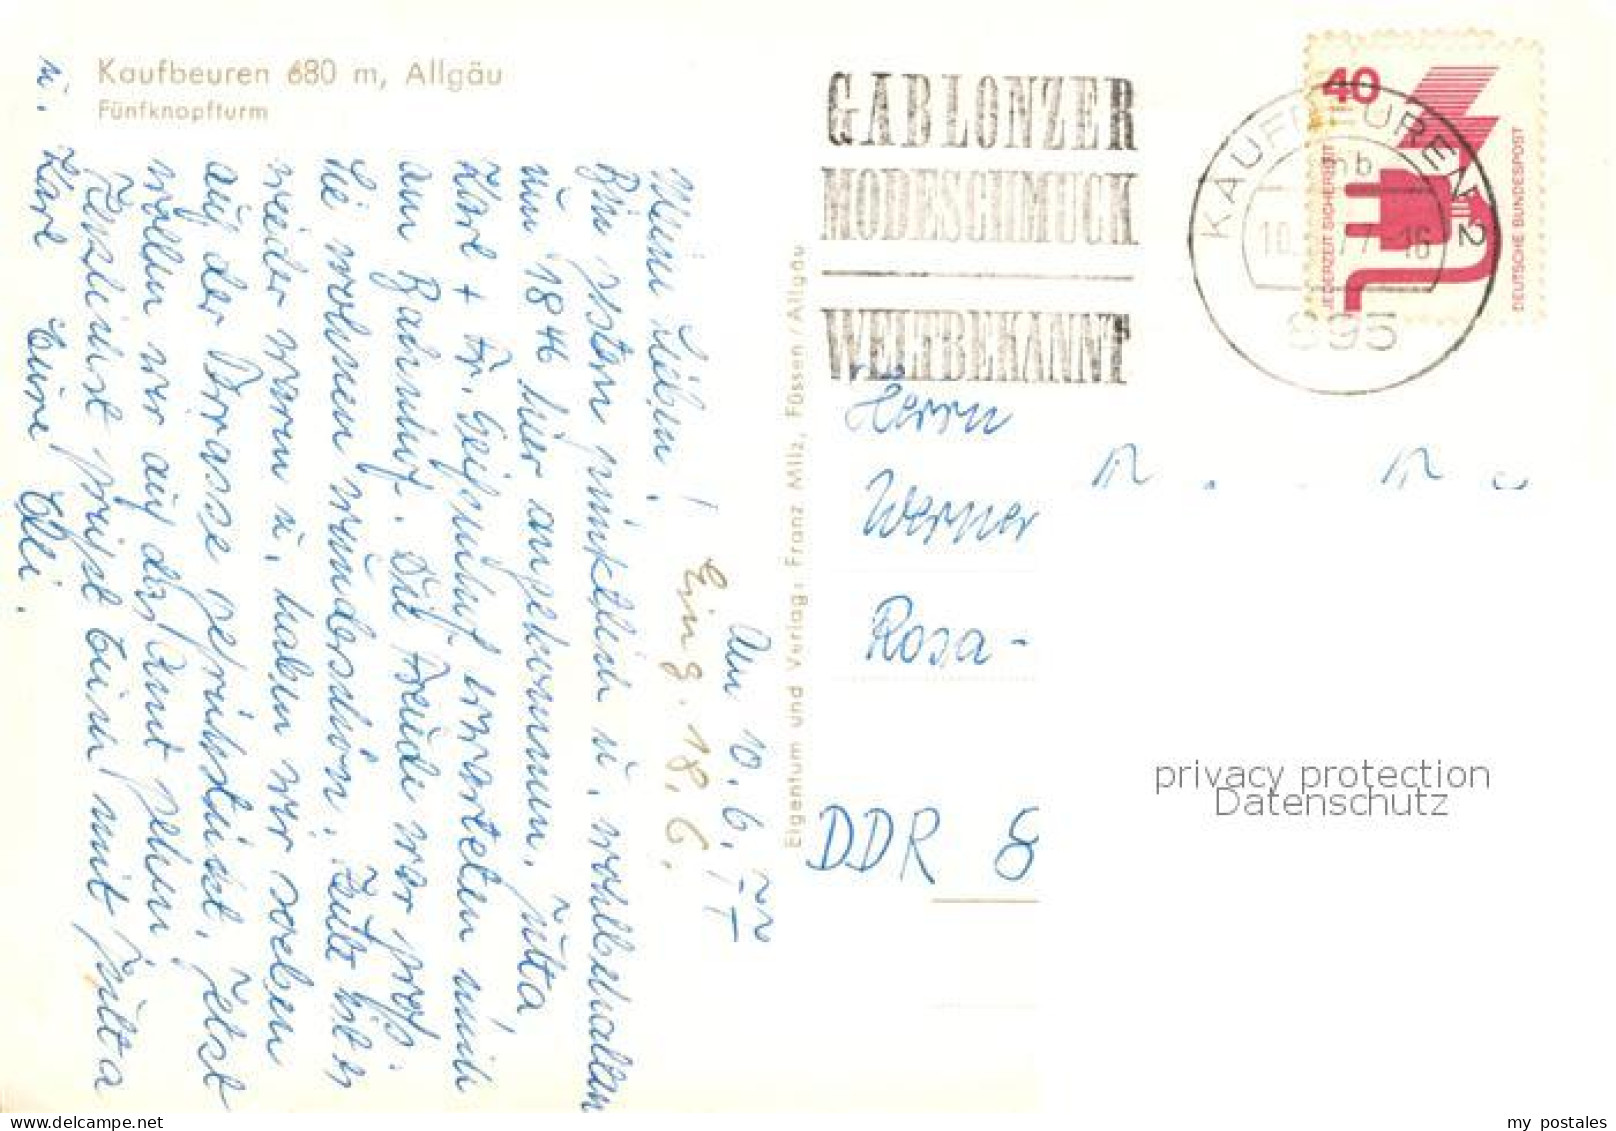 Kaufbeuren 680 m, Allgäu
Fünfknopfturm
Am 10. 6. 77
Eing. 18. 6.
Meine Lieben!
Bin gestern pünktlich u. wohlbehalten
um 18 44 hier angekommen. Jutta,
Karl + Fr. erwarteten mich
am Bahnhof. Die Freude war groß.
Sie wohnen wunderschön. Heute ist es
wieder warm u. haben wir soeben
auf der Terrasse gefrühstückt. Jetzt
wollen wir auf das Amt gehen.
Herzlichst grüßt Euch mit Jutta
u. Karl Eure Elli.
Eigentum und Verlag: Franz Milz, Füssen/Allgäu
GABLONZER
MODESCHMUCK
WELTBEKANNT
KAUFBEUREN 2
mb
895
40
JEDERZEIT SICHERHEIT
DEUTSCHE BUNDESPOST
Herrn
Werner
Rosa-
DDR 8
privacy protection
Datenschutz
my postales